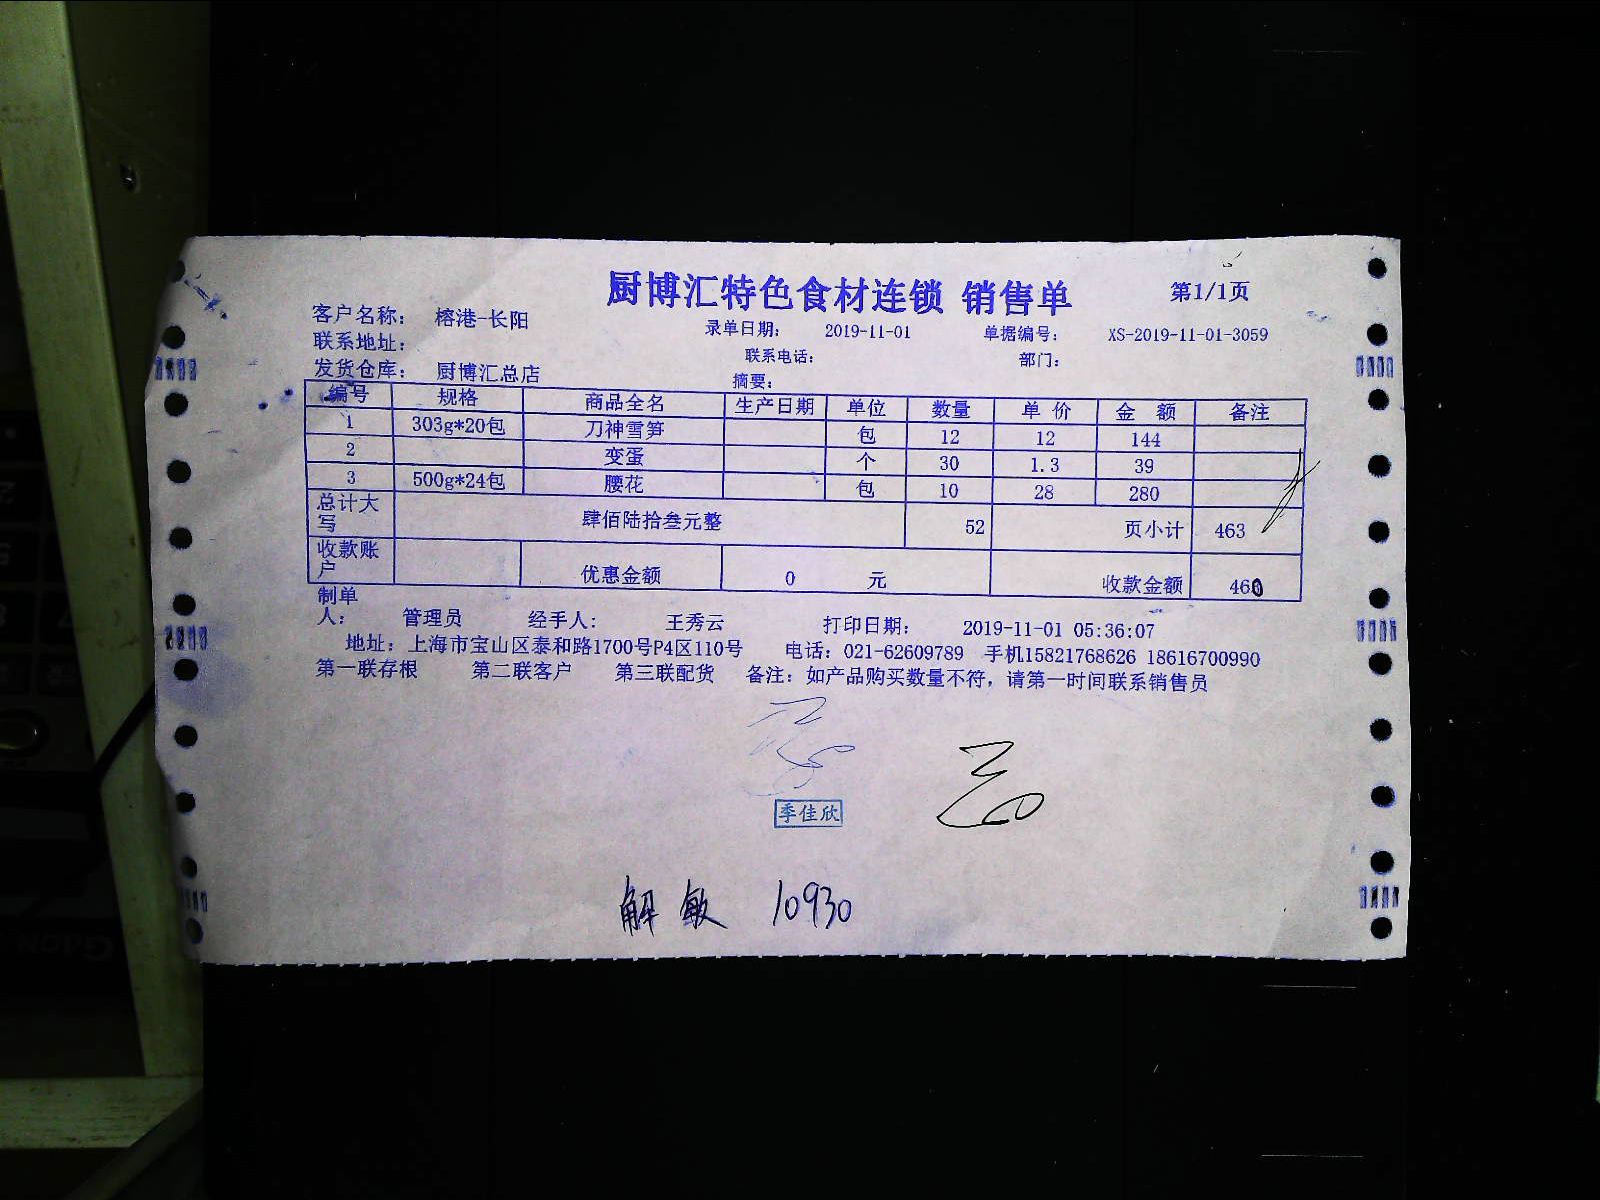 厨博汇特色食材连锁 销售单 第1/1页
客户名称： 榕港-长阳 录单日期： 2019-11-01 单据编号： XS-2019-11-01-3059
联系地址： 联系电话： 部门：
发货仓库： 厨博汇总店 摘要：
编号 规格 商品全名 生产日期 单位 数量 单 价 金 额 备注
1 303g*20包 刀神雪笋 包 12 12 144
2 变蛋 个 30 1.3 39
3 500g*24包 腰花 包 10 28 280
总计大写 肆佰陆拾叁元整 52 页小计 463
收款账户 优惠金额 0 元 收款金额 460
制单人： 管理员 经手人： 王秀云 打印日期： 2019-11-01 05:36:07
地址：上海市宝山区泰和路1700号P4区110号 电话：021-62609789 手机15821768626 18616700990
第一联存根 第二联客户 第三联配货 备注：如产品购买数量不符，请第一时间联系销售员
季佳欣
解敏 10930